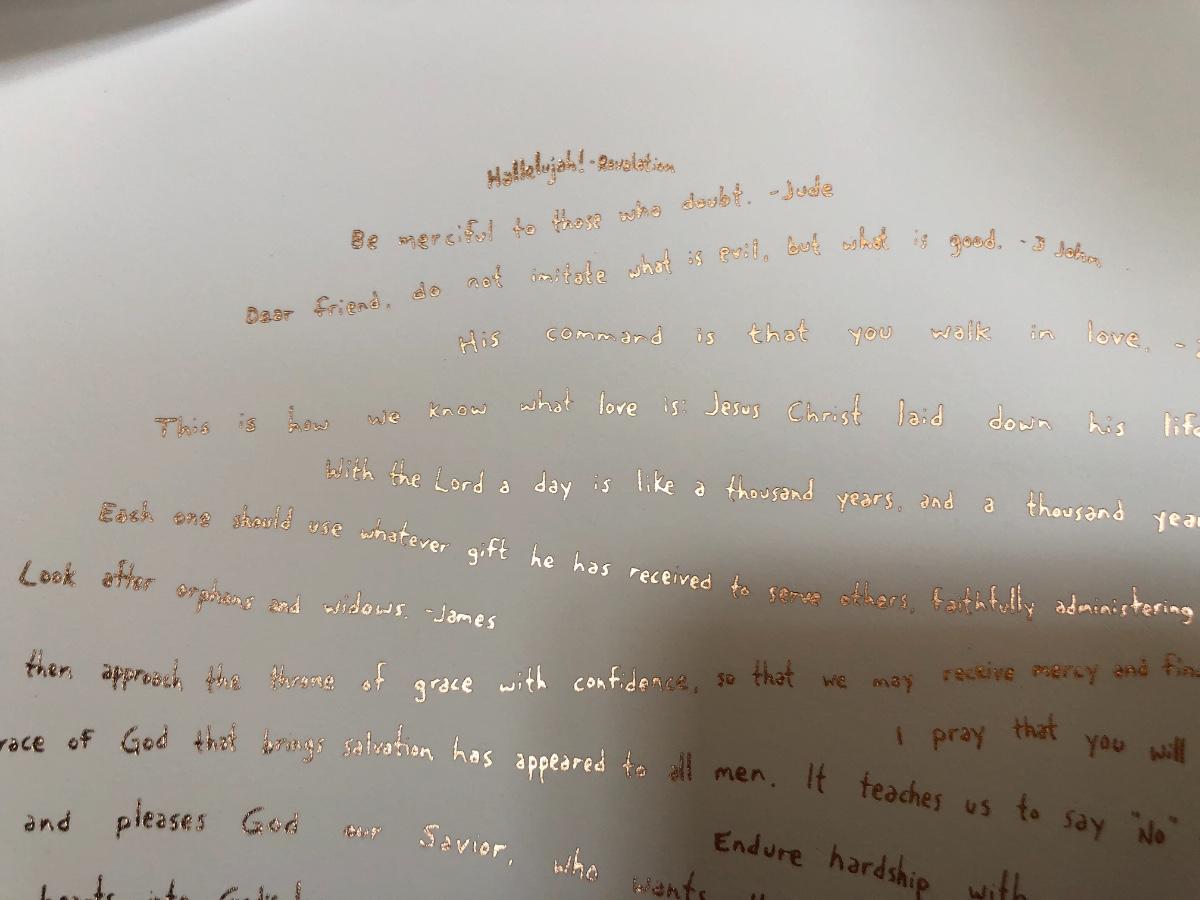 Hallelujah! - Revelation
Be merciful to those who doubt. - Jude
Dear friend, do not imitate what is evil, but what is good. - 3 John
His command is that you walk in love. -
This is how we know what love is: Jesus Christ laid down his life
With the Lord a day is like a thousand years, and a thousand
Each one should use whatever gift he has received to serve others, faithfully administering
Look after orphans and widows. - James
then approach the throne of grace with confidence, so that we may receive mercy and
I pray that you will
of God that brings salvation has appeared to all men. It teaches us to say "No"
and pleases God our Savior, who wants
Endure hardship with